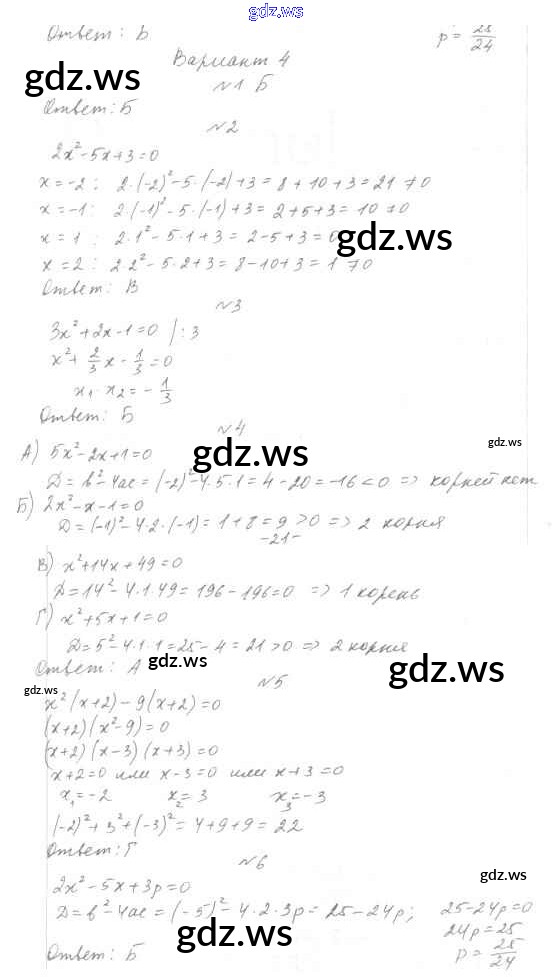 gdz.ws
Ответ: Б
p = 25/24
gdz.ws
Вариант 4
№1 Б
Ответ: Б
№2
2x² - 5x + 3 = 0
x = -2: 2·(-2)² - 5·(-2) + 3 = 8 + 10 + 3 = 21 ≠ 0
x = -1: 2·(-1)² - 5·(-1) + 3 = 2 + 5 + 3 = 10 ≠ 0
gdz.ws
x = 1: 2·1² - 5·1 + 3 = 2 - 5 + 3 = 0
x = 2: 2·2² - 5·2 + 3 = 8 - 10 + 3 = 1 ≠ 0
Ответ: В
№3
3x² + 2x - 1 = 0 |:3
x² + 2/3 x - 1/3 = 0
x₁·x₂ = - 1/3
Ответ: Б
№4
gdz.ws
gdz.ws
А) 5x² - 2x + 1 = 0
D = b² - 4ac = (-2)² - 4·5·1 = 4 - 20 = -16 < 0 => корней нет
Б) 2x² - x - 1 = 0
D = (-1)² - 4·2·(-1) = 1 + 8 = 9 > 0 => 2 корня
-21-
В) x² + 14x + 49 = 0
D = 14² - 4·1·49 = 196 - 196 = 0 => 1 корень
Г) x² + 5x + 1 = 0
D = 5² - 4·1·1 = 25 - 4 = 21 > 0 => 2 корня
Ответ: А
gdz.ws
gdz.ws
№5
gdz.ws
x²(x+2) - 9(x+2) = 0
(x+2)(x²-9) = 0
(x+2)(x-3)(x+3) = 0
x+2=0 или x-3=0 или x+3=0
x₁ = -2 x₂ = 3 x₃ = -3
(-2)² + 3² + (-3)² = 4 + 9 + 9 = 22
Ответ: Г
№6
gdz.ws
2x² - 5x + 3p = 0
D = b² - 4ac = (-5)² - 4·2·3p = 25 - 24p; 25 - 24p = 0
24p = 25
gdz.ws
Ответ: Б
p = 25/24